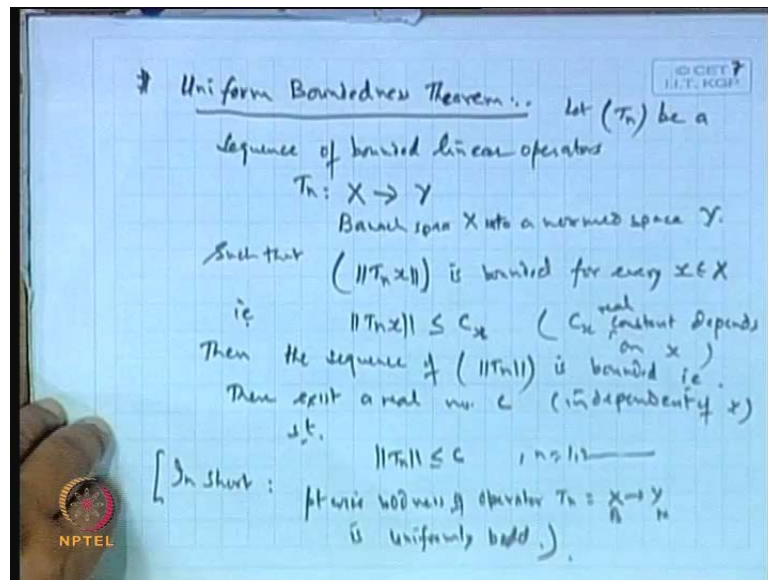 © CET 7
I.I.T. KGP
* Uniform Boundedness Theorem :. Let (Tn) be a
sequence of bounded linear operators
Tn : X → Y
Banach space X into a normed space Y.
Such that (||Tn x||) is bounded for every x ∈ X
ie ||Tn x|| ≤ Cx ( Cx real constant depends on x )
Then the sequence of (||Tn||) is bounded ie.
There exist a real no. c (independent of x)
s.t.
||Tn|| ≤ c , n=1,2
[ In short :
pt wise bddness of operator Tn : X → Y
B N
is uniformly bdd. )
NPTEL